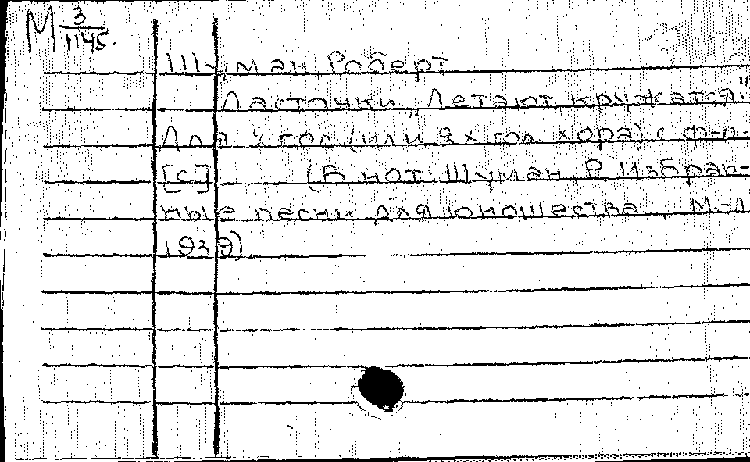 М 3/1145.
Шуман, Роберт
Ласточки. "Летают кружатся".
Для 2 гол (или 2х гол хора) с ф-п.
[С] (В нот. Шуман Р. Избран-
ные песни для юношества. М-Л
1939)